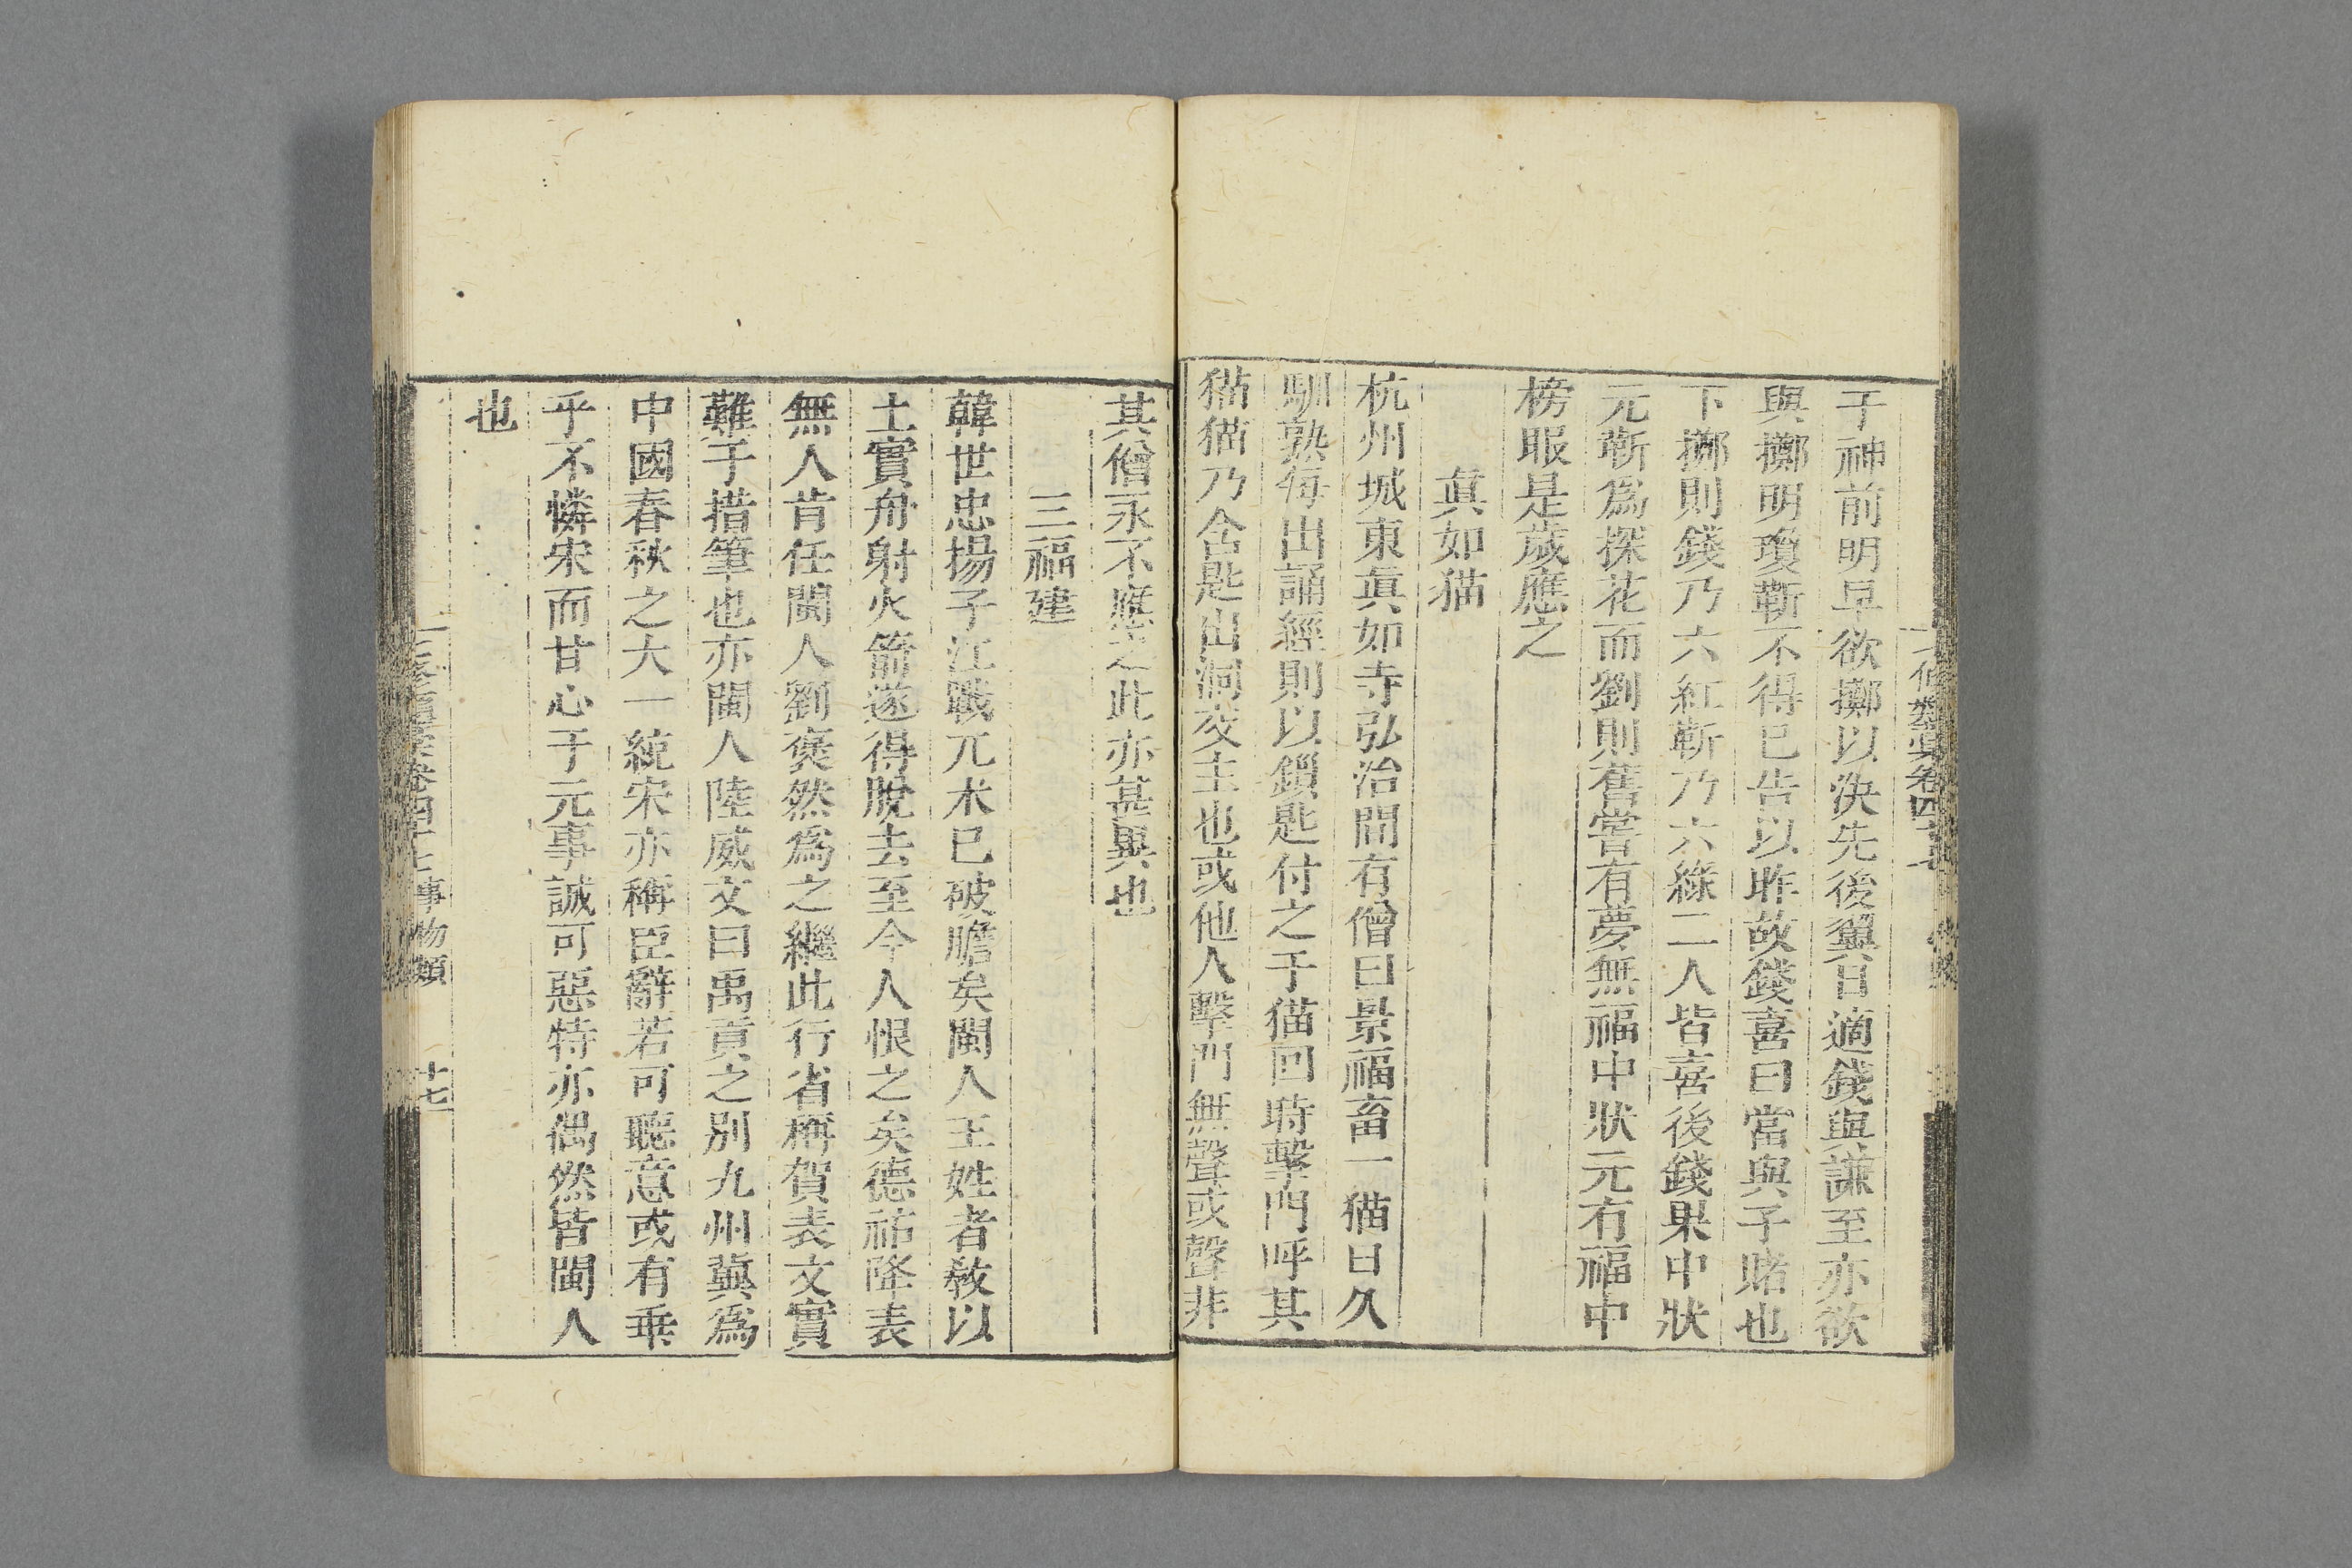 七修類藁卷四
于神前明早欲擲以決先後翼日適錢與謙至亦欲
與擲明瓊靳不得已告以昨故錢喜曰當與子賭也
下擲則錢乃六紅靳乃六綠二人皆喜後錢果中狀
元靳為探花而劉則舊嘗有夢無福中狀元有福中
榜眼是歲應之
眞如猫
杭州城東眞如寺弘治間有僧曰景福畜一猫日久
馴熟每出誦經則以鎖匙付之于猫回時擊門呼其
猫猫乃含匙出洞交主也或他人擊門無聲或聲非
其僧永不應之此亦甚異也
三福建
韓世忠揚子江戰兀术已破膽矣閩人王姓者敎以
土實舟射火箭遂得脫去至今人恨之矣德祐降表
無人肯任閩人劉褒然為之繼此行省稱賀表文實
難于措筆也亦閩人陸威文曰禹貢之別九州冀為
中國春秋之大一統宋亦稱臣辭若可聽意或有乖
乎不憐宋而甘心于元事誠可惡特亦偶然皆閩人
也
卷四十七事物類 十七